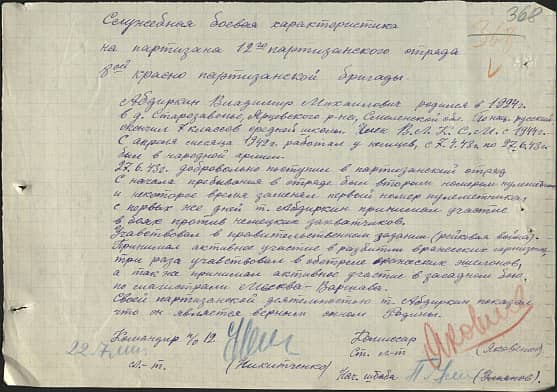 368
368
Служебная боевая характеристика
на партизана 12го партизанского отряда
ой красно партизанской бригады.
Абдиркин Владимир Михайлович родился в 1924г.
в д. Старозавопье, Ярцевского р-на, Смоленской обл. По нац. русский
окончил 7 классов средней школы. Член В.Л.К.С.М. с 1941г.
С апреля месяца 1942г. работал у немцев, с 7.4.43г. по 27.6.43г.
был в народной армии.
27.6.43г. добровольно поступил в партизанский отряд
С начала пребывания в отряде был вторым номером пулемётчика
и некоторое время заменял первый номер пулеметчика,
с первых же дней т. Абдиркин принимал участие
в боях против немецких захватчиков.
Участвовал в правительственном задании (рельсовая война).
Принимал активное участие в разбитии вражеских гарнизонов,
три раза участвовал в обстреле вражеских эшелонов,
а так же принимал активное участие в засадном бою,
по магистрали Москва-Варшава.
Своей партизанской деятельностью т. Абдиркин показал,
что он является верным сыном Родины.
Командир п/о 12
Комиссар
ст. л-т (Яковенко)
Яковенко
л-т. (Никитченко)
Нач. штаба